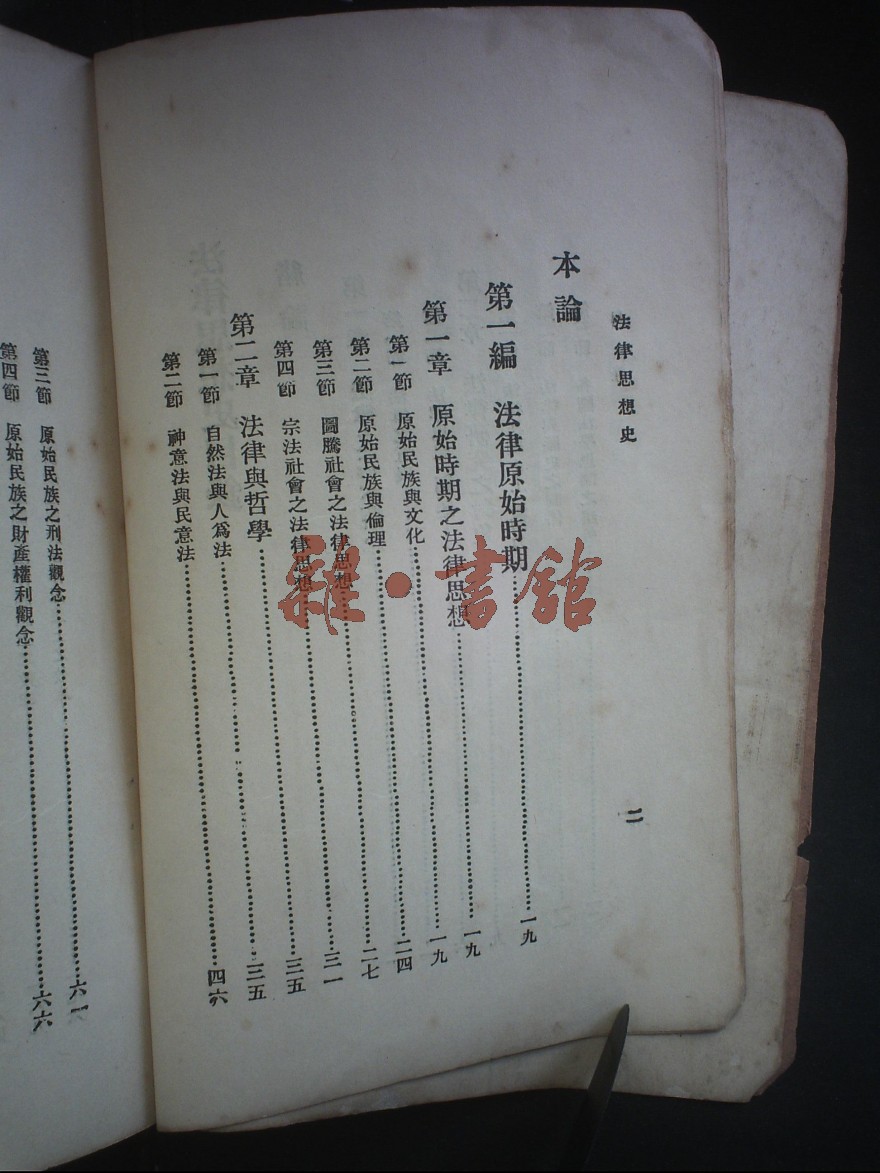 法律思想史 二
本論
第一編 法律原始時期……一九
第一章 原始時期之法律思想……一九
第一節 原始民族與文化……一九
第二節 原始民族與倫理……二四
第三節 圖騰社會之法律思想……二七
第四節 宗法社會之法律思想……三一
第二章 法律與哲學……三五
第一節 自然法與人爲法……三五
第二節 神意法與民意法……四六
第三節 原始民族之刑法觀念……六一
第四節 原始民族之財產權利觀念……六六
雜·書館